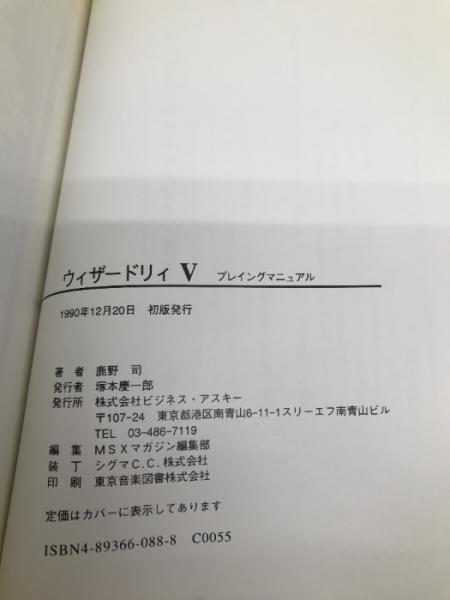 ウィザードリィ V プレイングマニュアル
1990年12月20日 初版発行
著 者 鹿野 司
発行者 塚本慶一郎
発行所 株式会社ビジネス・アスキー
〒107-24 東京都港区南青山6-11-1スリーエフ南青山ビル
TEL 03-486-7119
編 集 MSXマガジン編集部
装 丁 シグマC.C.株式会社
印 刷 東京音楽図書株式会社
定価はカバーに表示してあります
ISBN4-89366-088-8 C0055